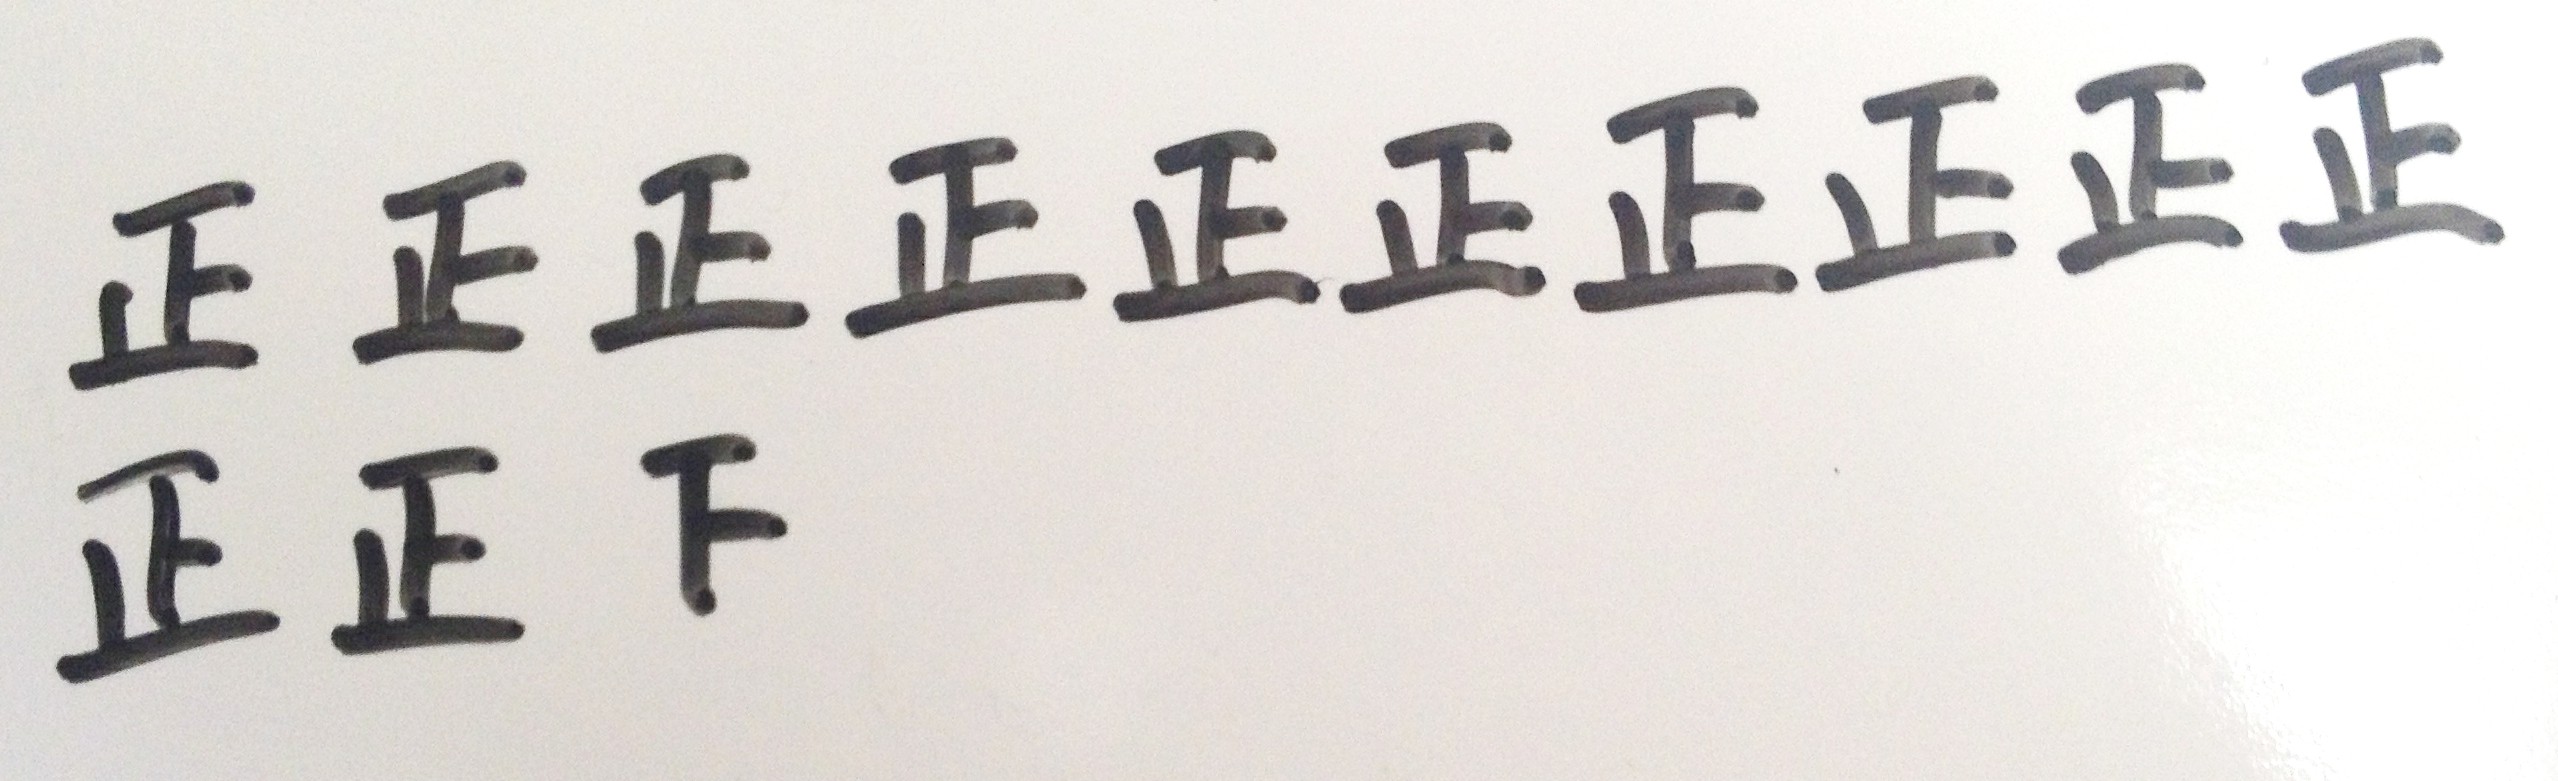 正正正正正正正正正正
正正下